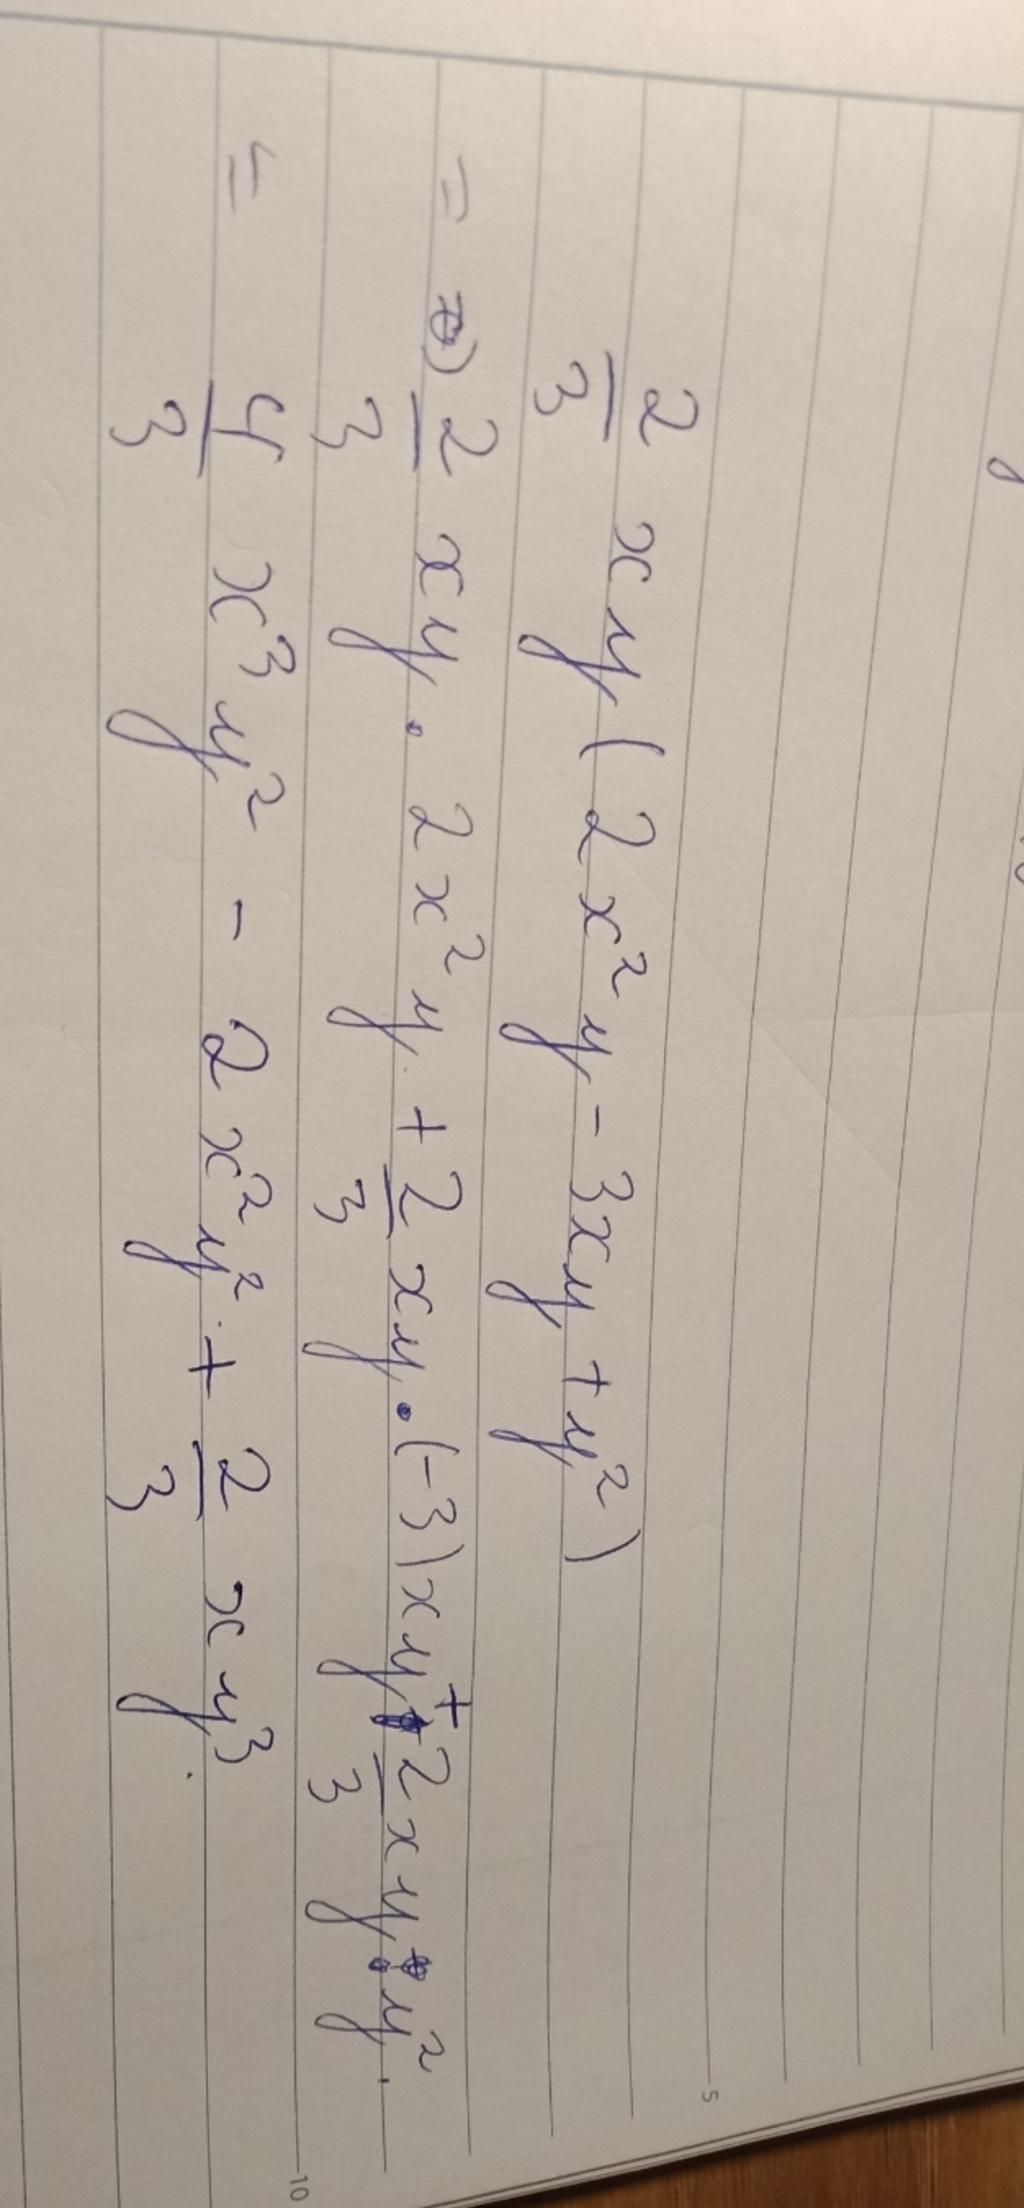 2/3 xy (2x² y - 3xy + y²)
= 2/3 xy . 2x² y + 2/3 xy . (-3) xy + 2/3 xy . y² .
= 4/3 x³ y² - 2 x² y² + 2/3 x y³ .
5
10